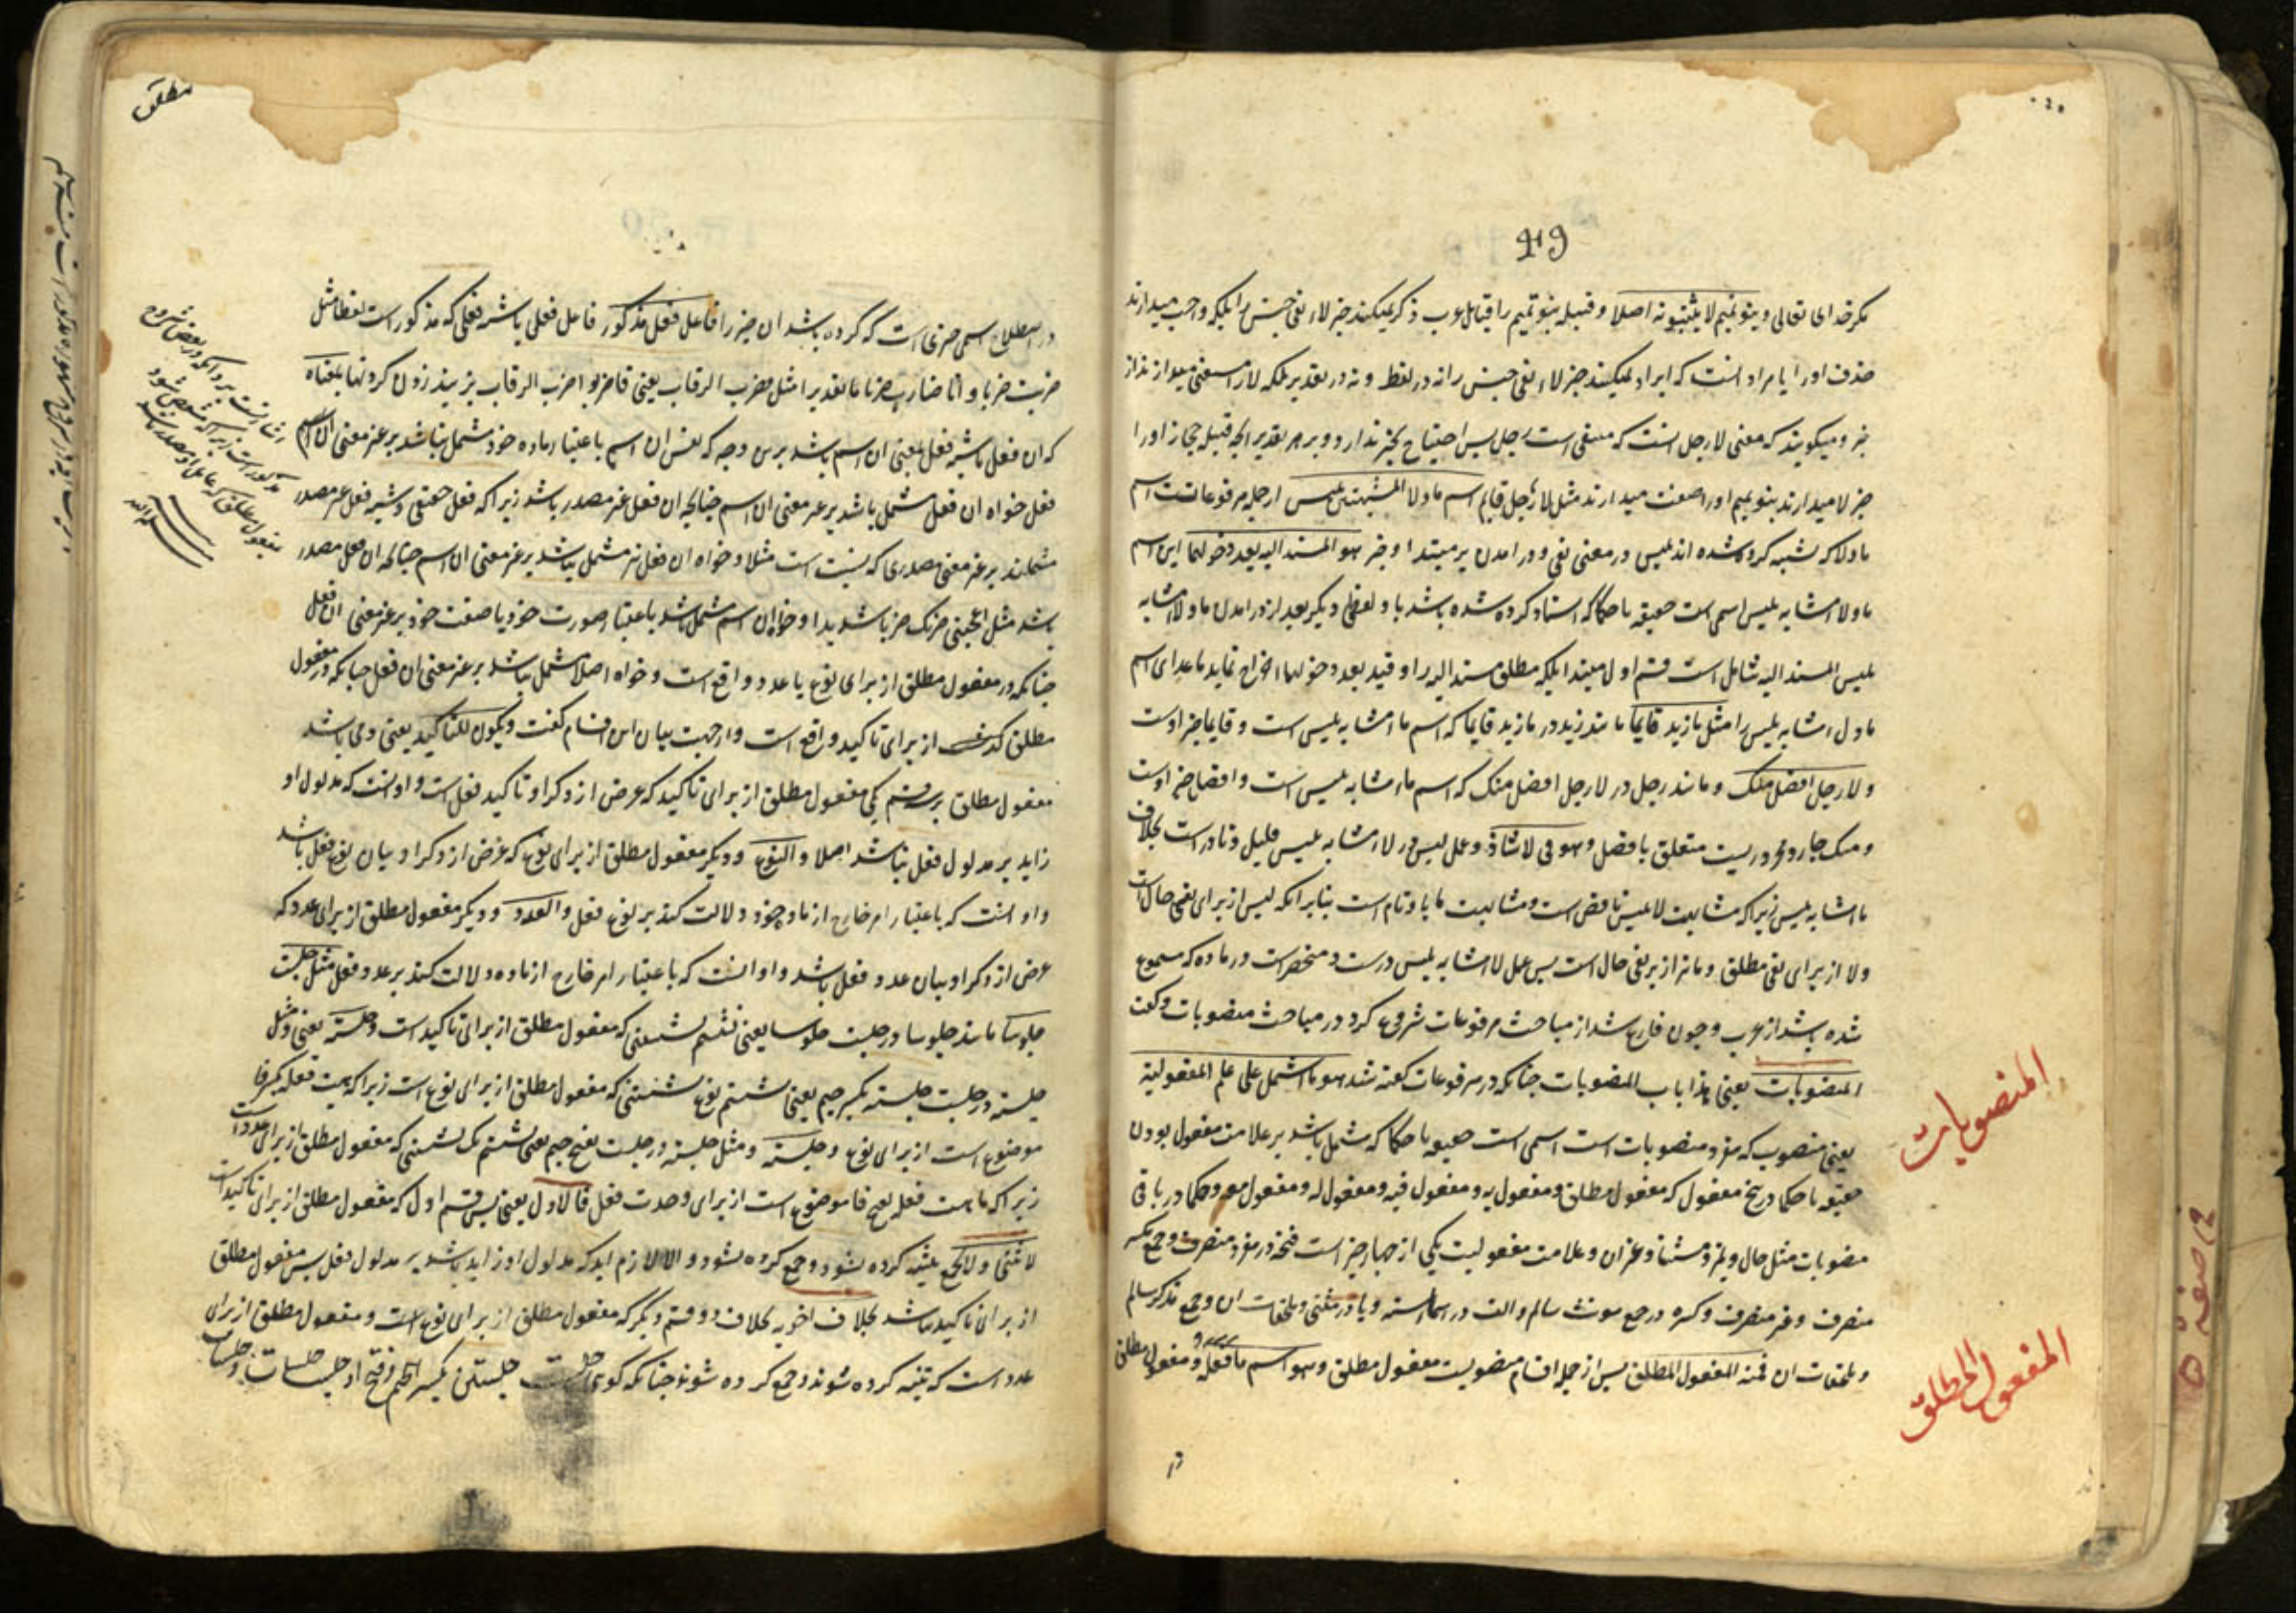 49
مکر خدای تعالی و بنو تمیم لا یثبتونه اصلا و قبیله بنو تمیم را قبایل عرب ذکر نمیکنند خبر لاء نفی جنس را بلکه واجب میدارند
حذف اورا یا مراد انست که ایراد نمیکنند خبر لاء نفی جنس را نه در لفظ و نه در تقدیر بلکه لا را مستغنی میدارند از
خبر و میکویند که معنی لا رجل انست که منتفی است رجل پس احتیاج بخبر ندارد و بر هر تقدیر انچه قبیله حجاز اورا
خبر لا میدارند بنو تمیم اورا صفت میدارند مثل لا رجل قایم اسم ما و لا المشبهتین بلیس از جمله مرفوعاتست اسم
ما و لا که تشبیه کرده شده اند بلیس در معنی نفی و در امدن بر مبتدا و خبر هو المسند الیه بعد دخولهما این اسم
ما و لا مشابه بلیس اسمی است حقیقه یا حکما که اسناد کرده شده باشد باو لفظی دیگر بعد از در امدن ما و لا مشابه
بلیس المسند الیه شامل است قسم اول مبتدا بلکه مطلق مسند الیه را و قید بعد دخولهما اخراج نماید ما عدای اسم
ما و لا مشابه بلیس را مثل ما زید قایما مانند زید در ما زید قایما که اسم ما مشابه بلیس است و قایما خبر اوست
و لا رجل افضل منک و مانند رجل در لا رجل افضل منک که اسم ما مشابه بلیس است و افضل خبر اوست
و منک جار و مجروریست متعلق بافضل و هو فی لا شاذ و عمل لیس در لا مشابه بلیس قلیل و نادر است بخلاف
ما مشابه بلیس زیرا که مشابهت لا بلیس ناقص است و مشابهت ما باو تام است بنابر انکه لیس از برای نفی حال است
و لا از برای نفی مطلق و ما نیز از بر نفی حال است پس عمل لا مشابه بلیس درست و منحصر است در ماده که مسموع
شده باشد از عرب و چون فارغ شد از مباحث مرفوعات شروع کرد در مباحث منصوبات و گفت
المنصوبات یعنی هذا باب المنصوبات چنانکه در مرفوعات گفته شد هو ما اشتمل علی علم المفعولیة
یعنی منصوب که مفرد منصوبات است اسمی است حقیقه یا حکما که مشتمل باشد بر علامت مفعول بودن
حقیقه یا حکما در پنج مفعول که مفعول مطلق و مفعول به و مفعول فیه و مفعول له و مفعول معه و حکما در باقی
منصوبات مثل حال و تمیز و مستثنا و غیر ان و علامت مفعولیت یکی از چهار چیز است فتحه در مفرد منصرف و جمع مکسر
منصرف و غیر منصرف و کسره در جمع مونث سالم و الف در اسماء سته و یا در مثنی و ملحقات ان و جمع مذکر سالم
و ملحقات ان فمنه المفعول المطلق پس از جمله اقسام منصوبست مفعول مطلق و هو اسم ما فعله و مفعول مطلق
المنصوبات
المفعول المطلق
مطلق
در اصطلاح اسم چیزی است که کرده باشد ان چیز را فاعل فعل مذکور فاعل فعلی یا شبه فعلی که مذکور است لفظا مثل
ضربت ضربا و انا ضارب ضربا یا تقدیرا مثل فضرب الرقاب یعنی فاضربوا ضرب الرقاب بزنید زدن گردنها بمعناه
که ان فعل یا شبه فعل بمعنی ان اسم باشد برین وجه که نفس ان اسم باعتبار ماده خود مشتمل نباشد بر غیر معنی ان اسم
فعل خواه ان فعل مشتمل باشد بر غیر معنی ان اسم چنانچه ان فعل غیر مصدر باشد زیرا که فعل حقیقی و شبه فعل غیر مصدر
مشتملند بر غیر معنی مصدری که نسبت است مثلا و خواه ان فعل نیز مشتمل نباشد بر غیر معنی ان اسم چنانچه ان فعل مصدر
باشد مثل اعجبنی ضربک ضربا شدیدا و خواه ان اسم مشتمل باشد باعتبار صورت خود یا صفت خود بر غیر معنی ان فعل
چنانکه در مفعول مطلق از برای نوع یا عدد واقع است و خواه اصلا مشتمل نباشد بر غیر معنی ان فعل چنانکه در مفعول
مطلق که از برای تاکید واقع است و از جهت بیان این اقسام گفت و یکون للتاکید یعنی و می باشد
مفعول مطلق بر سه قسم یکی مفعول مطلق از برای تاکید که غرض از ذکر او تاکید فعل است و او انست که مدلول او
زاید بر مدلول فعل نباشد اصلا و النوع و دیگر مفعول مطلق از برای نوع که غرض از ذکر او بیان نوع فعل باشد
و او انست که باعتبار امر خارج از ماده خود دلالت کند بر نوع فعل و العدد و دیگر مفعول مطلق از برای عدد که
غرض از ذکر او بیان عدد فعل باشد و او انست که باعتبار امر خارج از ماده دلالت کند بر عدد فعل مثل جلست
جلوسا مانند جلوسا در جلست جلوسا یعنی نشستم نشستنی که مفعول مطلق از برای تاکید است و جلسة یعنی و مثل
جلسة در جلست جلسة بکسر جیم یعنی نشستم نوع نشستنی که مفعول مطلق از برای نوع است زیرا که هیئت فعله بکسر فا
موضوع است از برای نوع و جلسة و مثل جلسة در جلست بفتح جیم یعنی نشستم یک نشستنی که مفعول مطلق از برای عدد است
زیرا که هیئت فعله بفتح فا موضوع است از برای وحدت فعل فالاول یعنی پس قسم اول که مفعول مطلق از برای تاکید است
لا یثنی و لا یجمع تثنیه کرده نشود و جمع کرده نشود و الا لازم اید که مدلول او زاید باشد بر مدلول فعل پس مفعول مطلق
از برای تاکید نباشد بخلاف اخویه بخلاف دو قسم دیگر که مفعول مطلق از برای نوع است و مفعول مطلق از برای
عدد است که تثنیه کرده شوند و جمع کرده شوند چنانکه گوی جلست جلستین بکسر الجیم او فتح او جلسات و جلسات